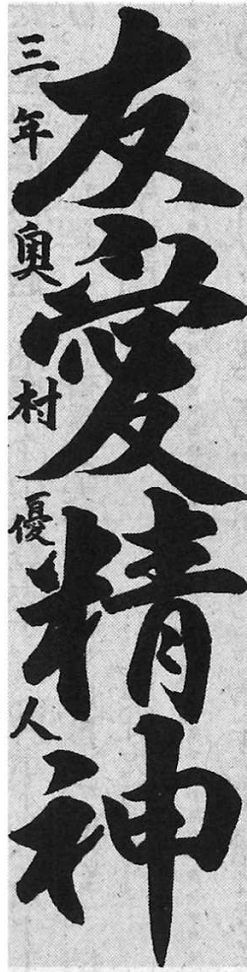 友愛精神
三年奥村優人